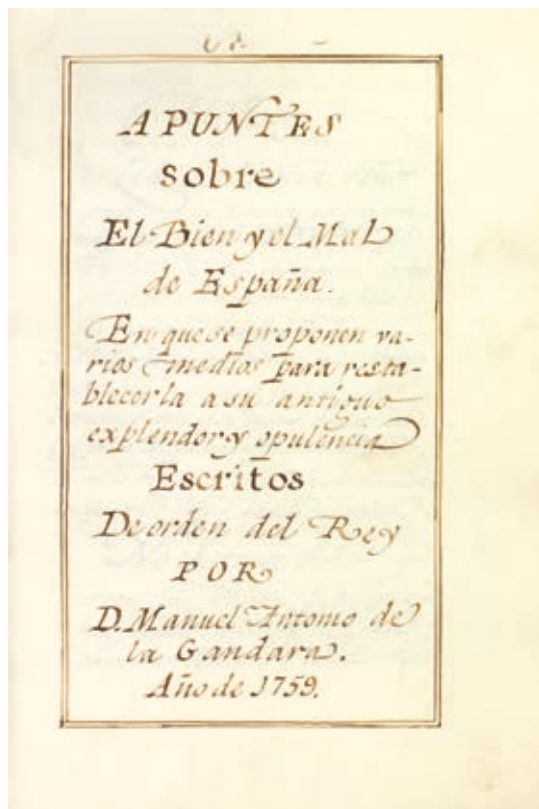 APUNTES
sobre
El Bien y el Mal
de España.
En que se proponen va-
rios medios para resta-
blecerla a su antiguo
explendor y opulencia
Escritos
De orden del Rey
POR
D. Manuel Antonio de
la Gandara.
Año de 1759.